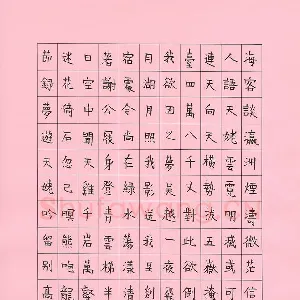 海客談瀛洲煙濤微茫信
人語天姥雲霓明滅或可
連天向天橫勢拔五嶽掩
臺四萬八千丈對此欲倒
我欲因之夢吳越一夜飛
月湖月照我影送我至剡
宿處今尚在綠水蕩漾清
著謝公屐身登青雲梯半
日空中聞天雞千岩萬
迷花倚石忽已暝熊咆龍
節錄夢遊天姥吟留別高